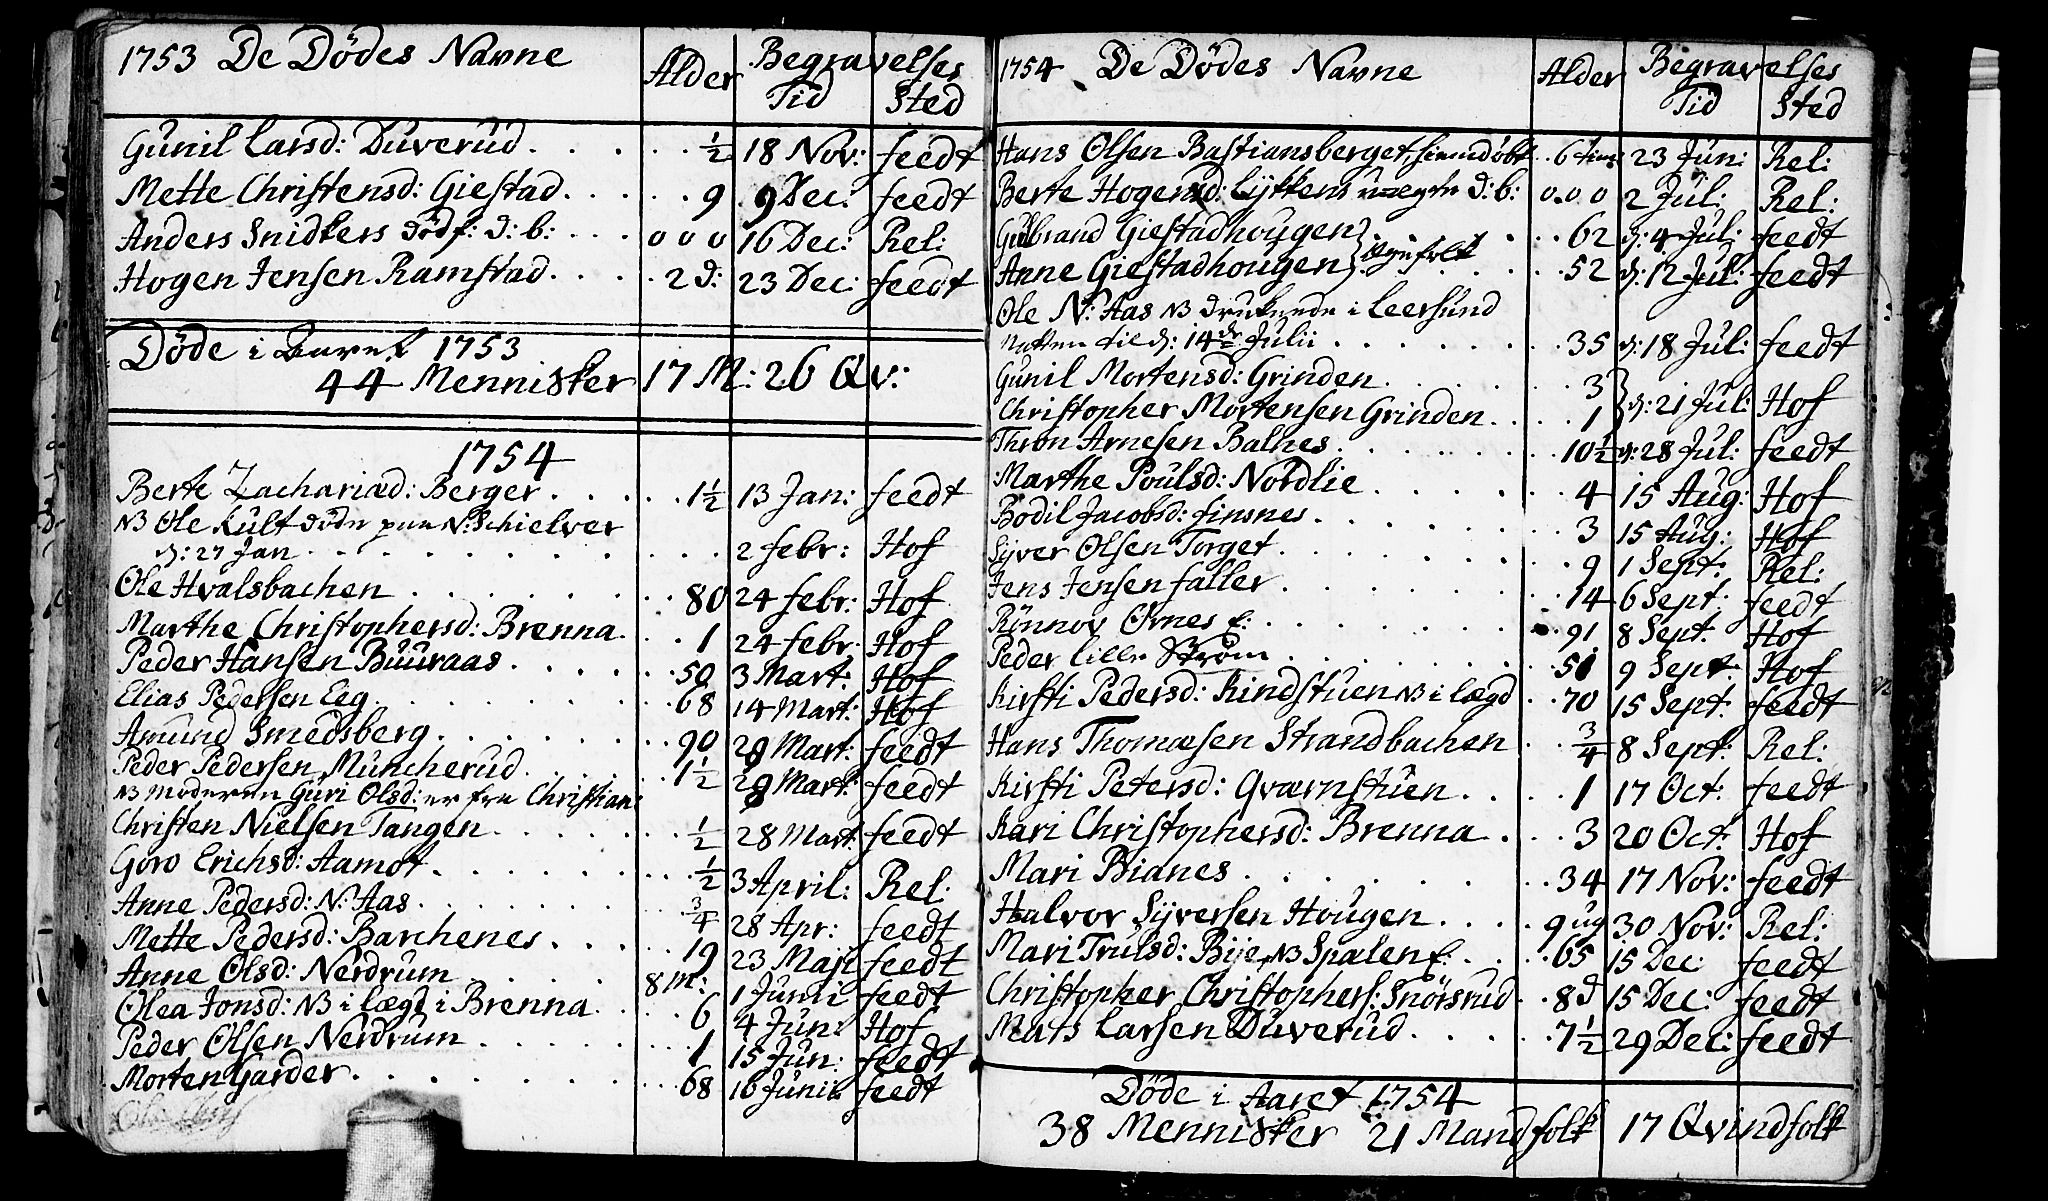 1753 De Dödes Navne Alder Begravelses
Tid Sted
Gunil Larsd: Duverud . . . . . . ½ 18 Nov: feedt
Mette Christensd: Giestad . . . . . . 9 9 Dec: feedt
Anders Snidkers dödf: d: b: . . . 0 0 0 16 Dec: Rel:
Hogen Jensen Ramstad . . . . . 2 d: 23 Dec: feedt
Döde i Aaret 1753
44 Mennisker 17 M: 26 Qv:
1754
Berte Zachariad: Berger . . . . . 1½ 13 Jan: feedt
NB Ole Kult döde paa N: Schielver
d: 27 Jan . . . . . . . . 2 febr: Hof
Ole Hvalsbachen . . . . . . . 80 24 febr: Hof
Marthe Christophersd: Brenna . . . 1 24 febr: Hof
Peder Hansen Buuraas . . . . . . 50 3 Mart: Hof
Elias Pedersen Eeg . . . . . . . 68 14 Mart: Hof
Amund Smedsberg . . . . . . . 90 28 Mart: feedt
Peder Pedersen Muncherud . . . . 1½ 28 Mart: feedt
NB Moderen Guri Olsd: er fra Christian:
Christen Nielsen Tangen . . . . . . ½ 28 Mart: feedt
Goro Erichsd: Aamot . . . . . . . ½ 3 April: Rel:
Anne Pedersd: N: Aas . . . . . . . ¾ 28 Apr: feedt
Mette Pedersd: Barchenes . . . . . 19 23 Maji feedt
Anne Olsd: Nerdrum . . . . . 8 M: 1 Junii feedt
Olea Jonsd: NB i lægd i Brenna . . . . 6 4 Jun: Hof
Peder Olsen Nerdrum . . . . . . . 1 15 Jun: feedt
Morten Garder . . . . . . . . . 68 16 Junii feedt
1754 De Dödes Navne Alder Begravelses
Tid Sted
Hans Olsen Bastiansberget, hiemdöbt . . 6 tim: 23 Jun: Rel:
Berte Hogensd: Lykkens uægte d: b: 0 . 0 . 0 2 Jul: Rel:
Gulbrand Giestadhougen . . . . . 62 d: 4 Jul: feedt
Anne Giestadhougen } Ægtefolk . . . 52 d: 12 Jul: feedt
Ole N: Aas NB druknede i Leersund
Natten til d: 14de Julii . . . . . . . . 35 d: 18 Jul: feedt
Gunil Mortensd: Grinden . . . . . . 3
Christopher Mortensen Grinden . . . . 1 } d: 21 Jul: Hof
Thron Arnesen Balnes . . . . . . . 10½ d: 28 Jul: feedt
Marthe Poulsd: Nordlie . . . . . . 4 15 Aug: Hof
Bodil Jacobsd: finsnes . . . . . . . 3 15 Aug: Hof
Syver Olsen Torget . . . . . . . . 9 1 Sept: Rel:
Jens Jensen faller . . . . . . . . 14 6 Sept: feedt
Rönnov Örnes E: . . . . . . . . 91 8 Sept: Hof
Peder Lille Ström . . . . . . . . 51 9 Sept: Hof
Kirsti Pedersd: Kindstuen NB i lægd . . 70 15 Sept: feedt
Hans Thomæsen Strandbachen . . ¾ 8 Sept: Rel:
Kirsti Petersd: Qværnstuen . . . . . 1 17 Oct: feedt
Kari Christophersd: Brenna . . . . 3 20 Oct: Hof
Mari Bianes . . . . . . . . . 34 17 Nov: feedt
Halvor Syversen Hougen . . . . 9 ug 30 Nov: Rel:
Mari Trulsd: Bije, NB Spalen E: . . . . 65 15 Dec: feedt
Christopher Christophers: Snörsrud . . 8 d 15 Dec: feedt
Mats Larsen Duverud . . . . . . 7½ 29 Dec: feedt
Döde i Aaret 1754
38 Mennisker 21 Mandfolk 17 Qvindfolk